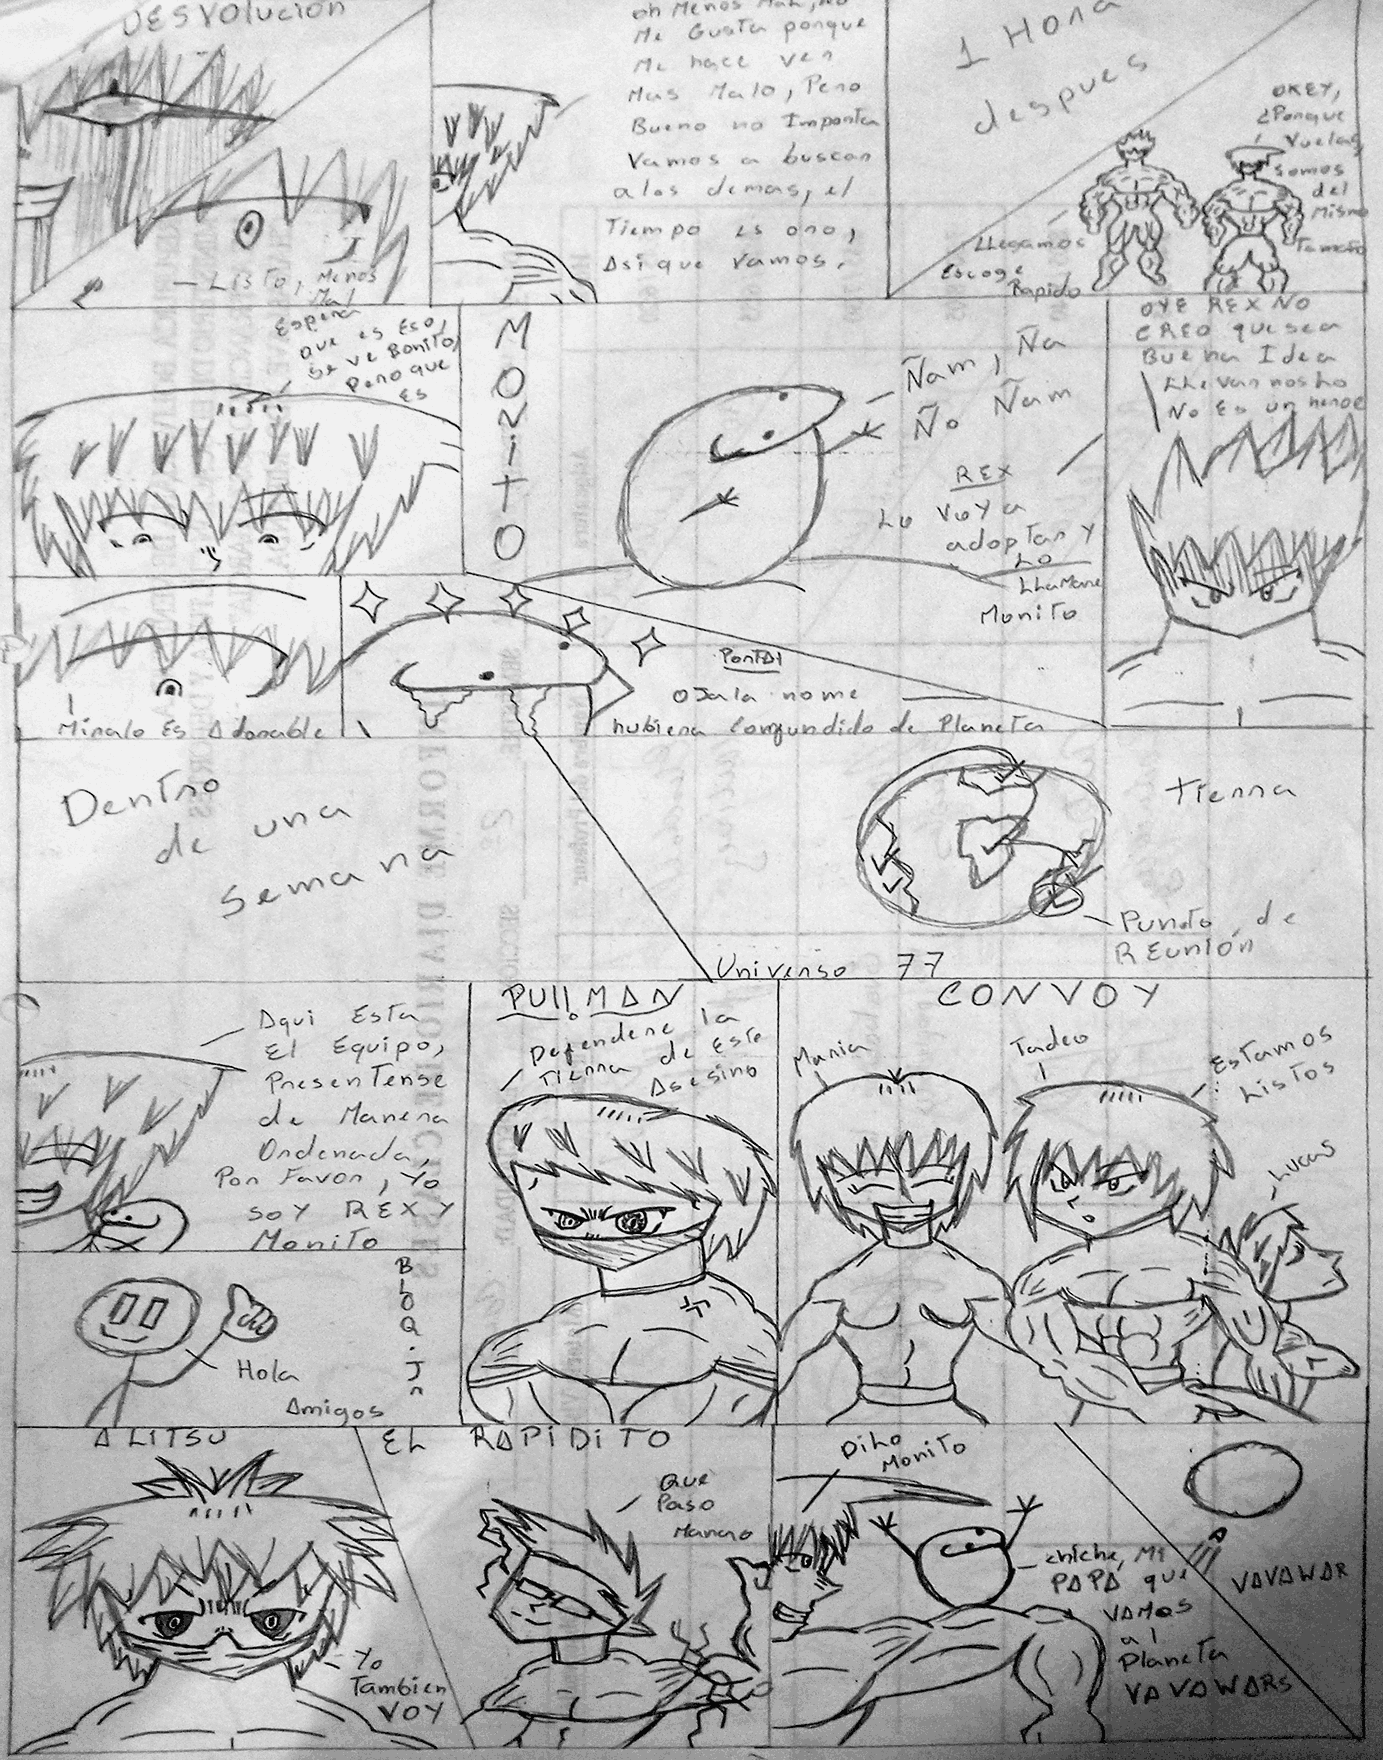 DESVOLUCION
- Listo, Menos
Mal
oh Menos Mal, no
Me Gusta porque
Me hace ver
Mas Malo, Pero
Bueno no Importa
Vamos a buscar
a los demas, el
Tiempo es oro,
Asi que Vamos.
1 Hora
despues
LLegamos
Escoge
Rapido
OKEY,
¿Porque
Vuelas,
somos
del
Mismo
Tamaño
Espera
que es Eso,
se ve Bonito,
Pero que
es
MONiTO
Ñam, Ña
Ño Ñam
REX
Lo voy a
adoptar y
Lo
LLamare
Monito
OYE REX NO
CREO que sea
Buena Idea
LLevarnosho
No Es un heroe
Miralo Es Adorable
PORTAL
OJala nome
hubiera Confundido de Planeta
Dentro
de una
semana
Tierra
Punto de
REunión
Universo 77
Aqui Esta
El Equipo,
PresenTense
de Manera
Ordenada,
Por Favor, Yo
soy REX Y
Monito
PULLMAN
Defendere la
Tierra de Este
Asesino
CONVOY
Maria
Tadeo
Estamos
Listos
Lucas
BLOQ.Jr
Hola
Amigos
ALITSU
Yo
Tambien
VOY
EL RAPIDITO
Que
Paso
Manao
Diho
Monito
chiche, Mi
PAPA que
VAMos
al
Planeta
VAVAWARS
VAVAWAR